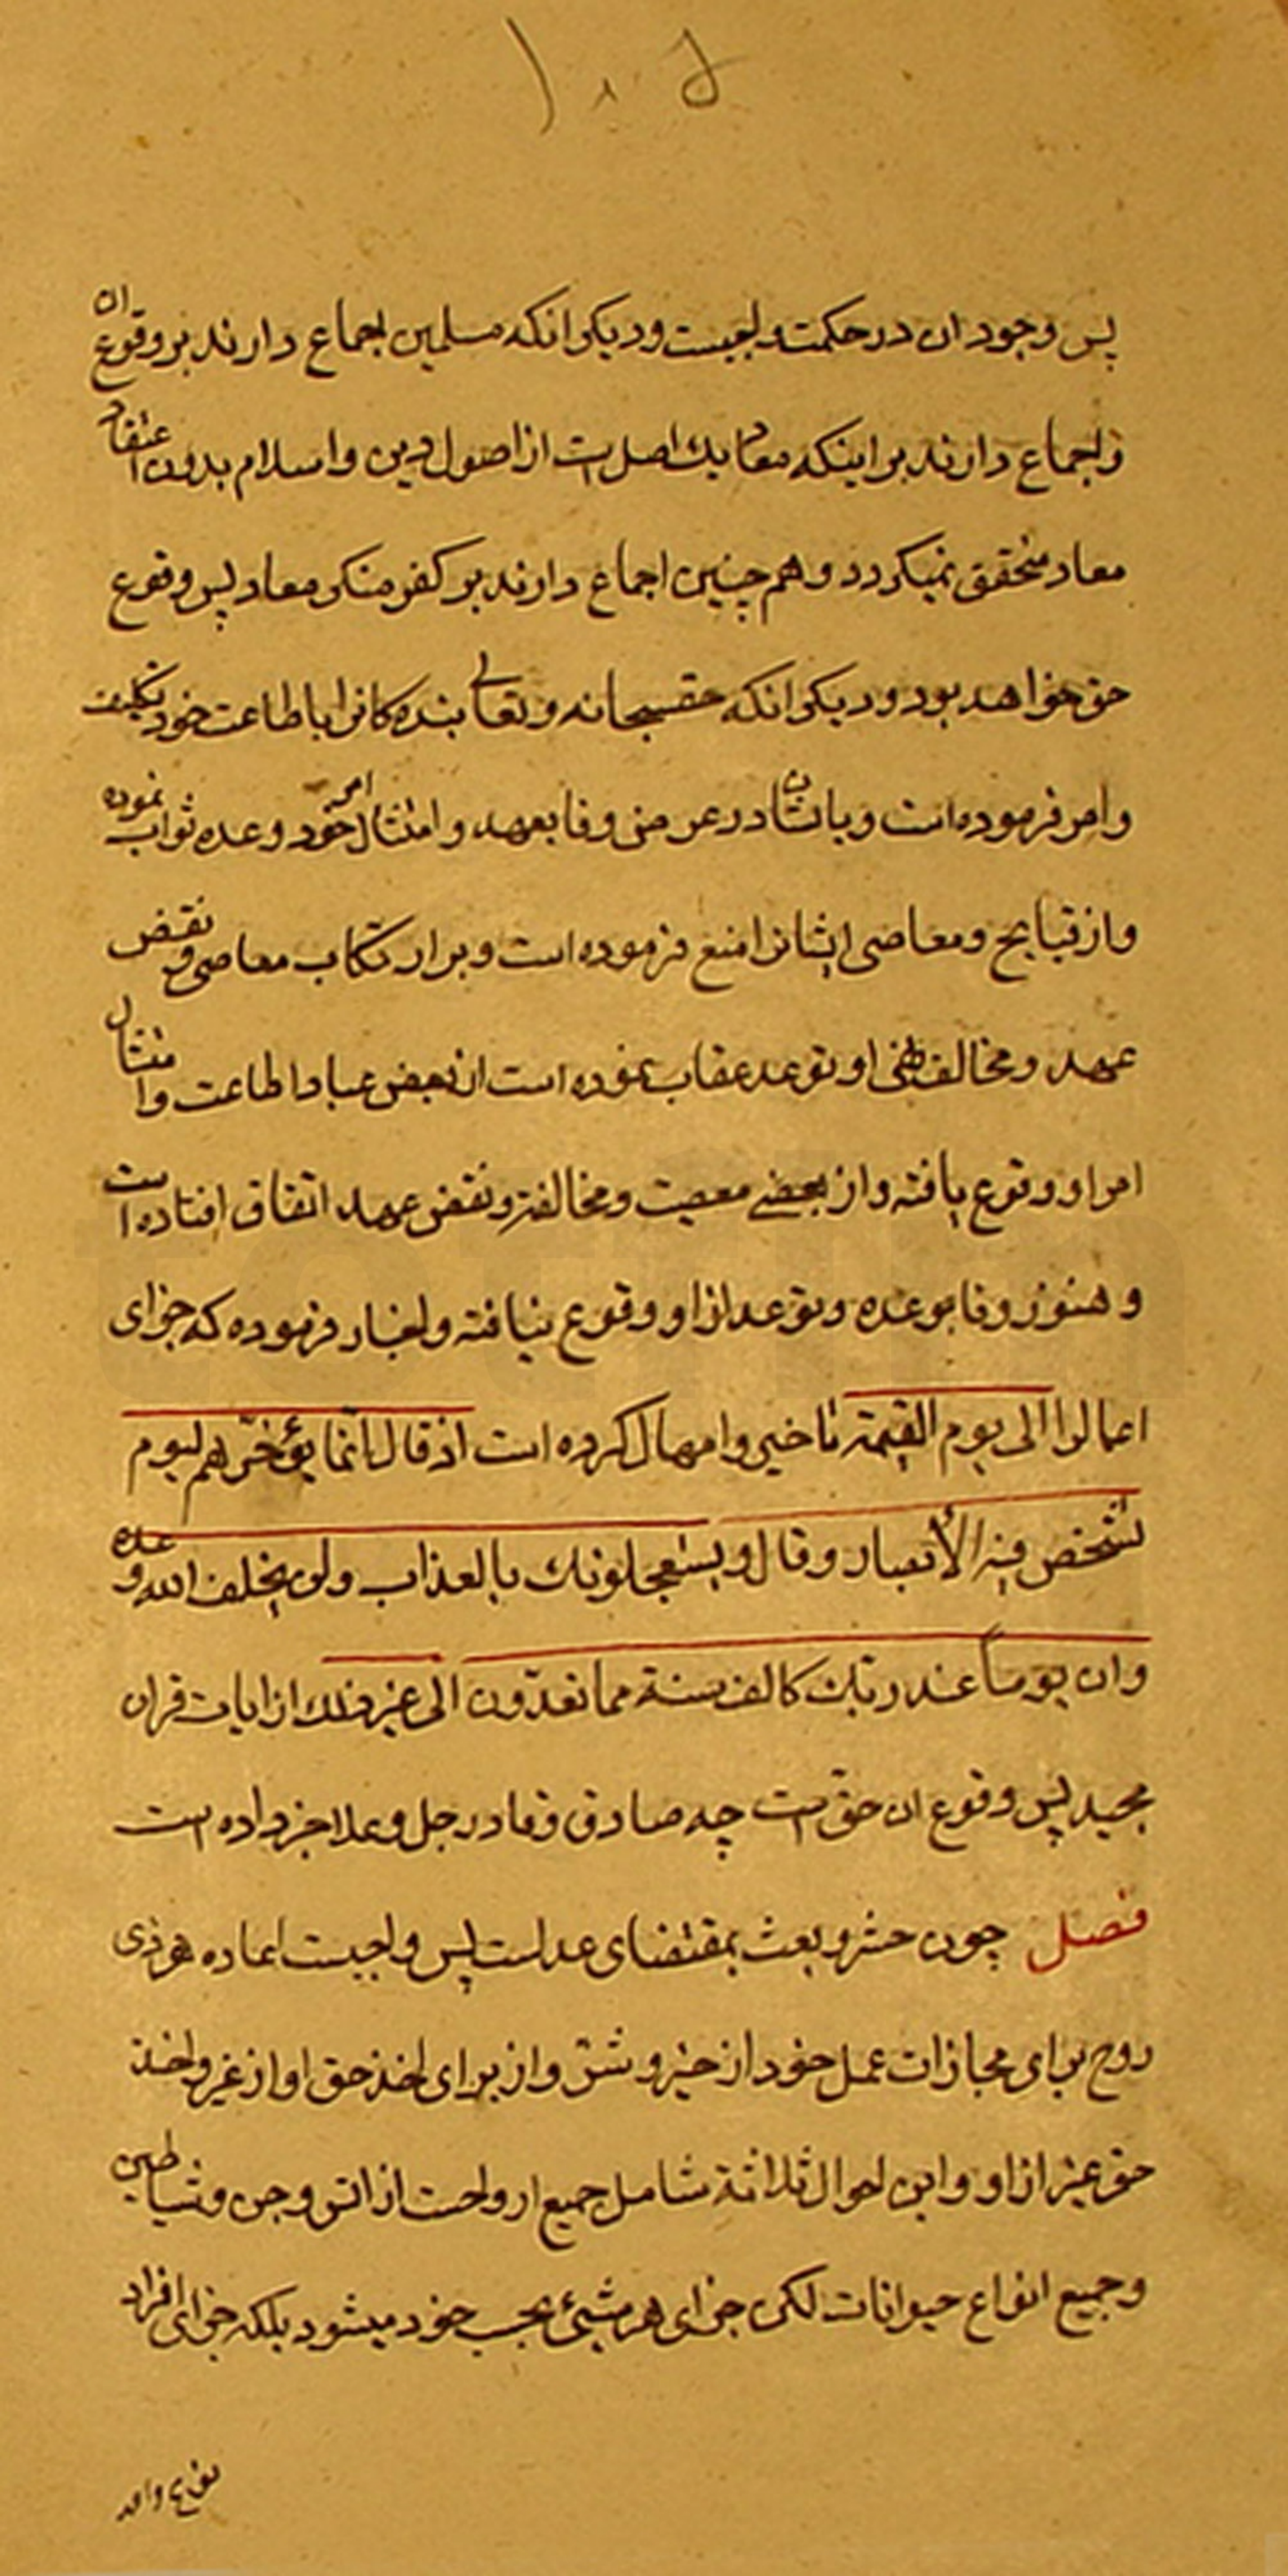 ۱۰۵
پس وجود ان در حکمت واجبست و دیگر انکه مسلمین اجماع دارند بر وقوع ان
و اجماع دارند بر اینکه معاد یک اصل است از اصول دین و اسلام بدون اعتقاد
معاد متحقق نمیگردد و هم چنین اجماع دارند بر کفر منکر معاد پس وقوع
حق خواهد بود و دیگر انکه حقسبحانه و تعالی بنده کانرا باطاعت خود تکلیف
و امر فرموده است و باشان در عوض وفا بعهد و امتثال امر خود وعده ثواب نموده
و از قبایح و معاصی ایشانرا منع فرموده است و بر ارتکاب معاصی و نقض
عهد و مخالفت نهی او توعد عقاب نموده است از بعض عباد اطاعت و امتثال
امر او وقوع یافته و از بعضی معصیت و مخالفة و نقض عهد اتفاق افتاده است
و هنوز وفا بوعده و توعد از او وقوع نیافته و اخبار فرموده که جزای
اعمال را الی یوم القیمة تاخیر و امهال کرده است اذ قال انما یؤخّرهم لیوم
تشخص فیه الأبصار و قال و یستعجلونك بالعذاب ولن یخلف الله وعده
وان یوماً عند ربّك کالف سنة مما تعدّون الی غیر ذلك از ایات قران
مجید پس وقوع ان حق است چه صادق و قادر جل و علا خبر داده است
فصل چون حشر و بعث بمقتضای عدلست پس واجبست اعاده هر ذی
روح برای مجازات عمل خود از خیر و شرّ و از برای اخذ حق او از غیر و اخذ
حق غیر از او و این احوال ثلاثة شامل جمیع ارواحست از انس و جن و شیاطین
و جمیع انواع حیوانات لکن جزای هر شیئ بحسب خود میشود بلکه جزای افراد
نوع واحد